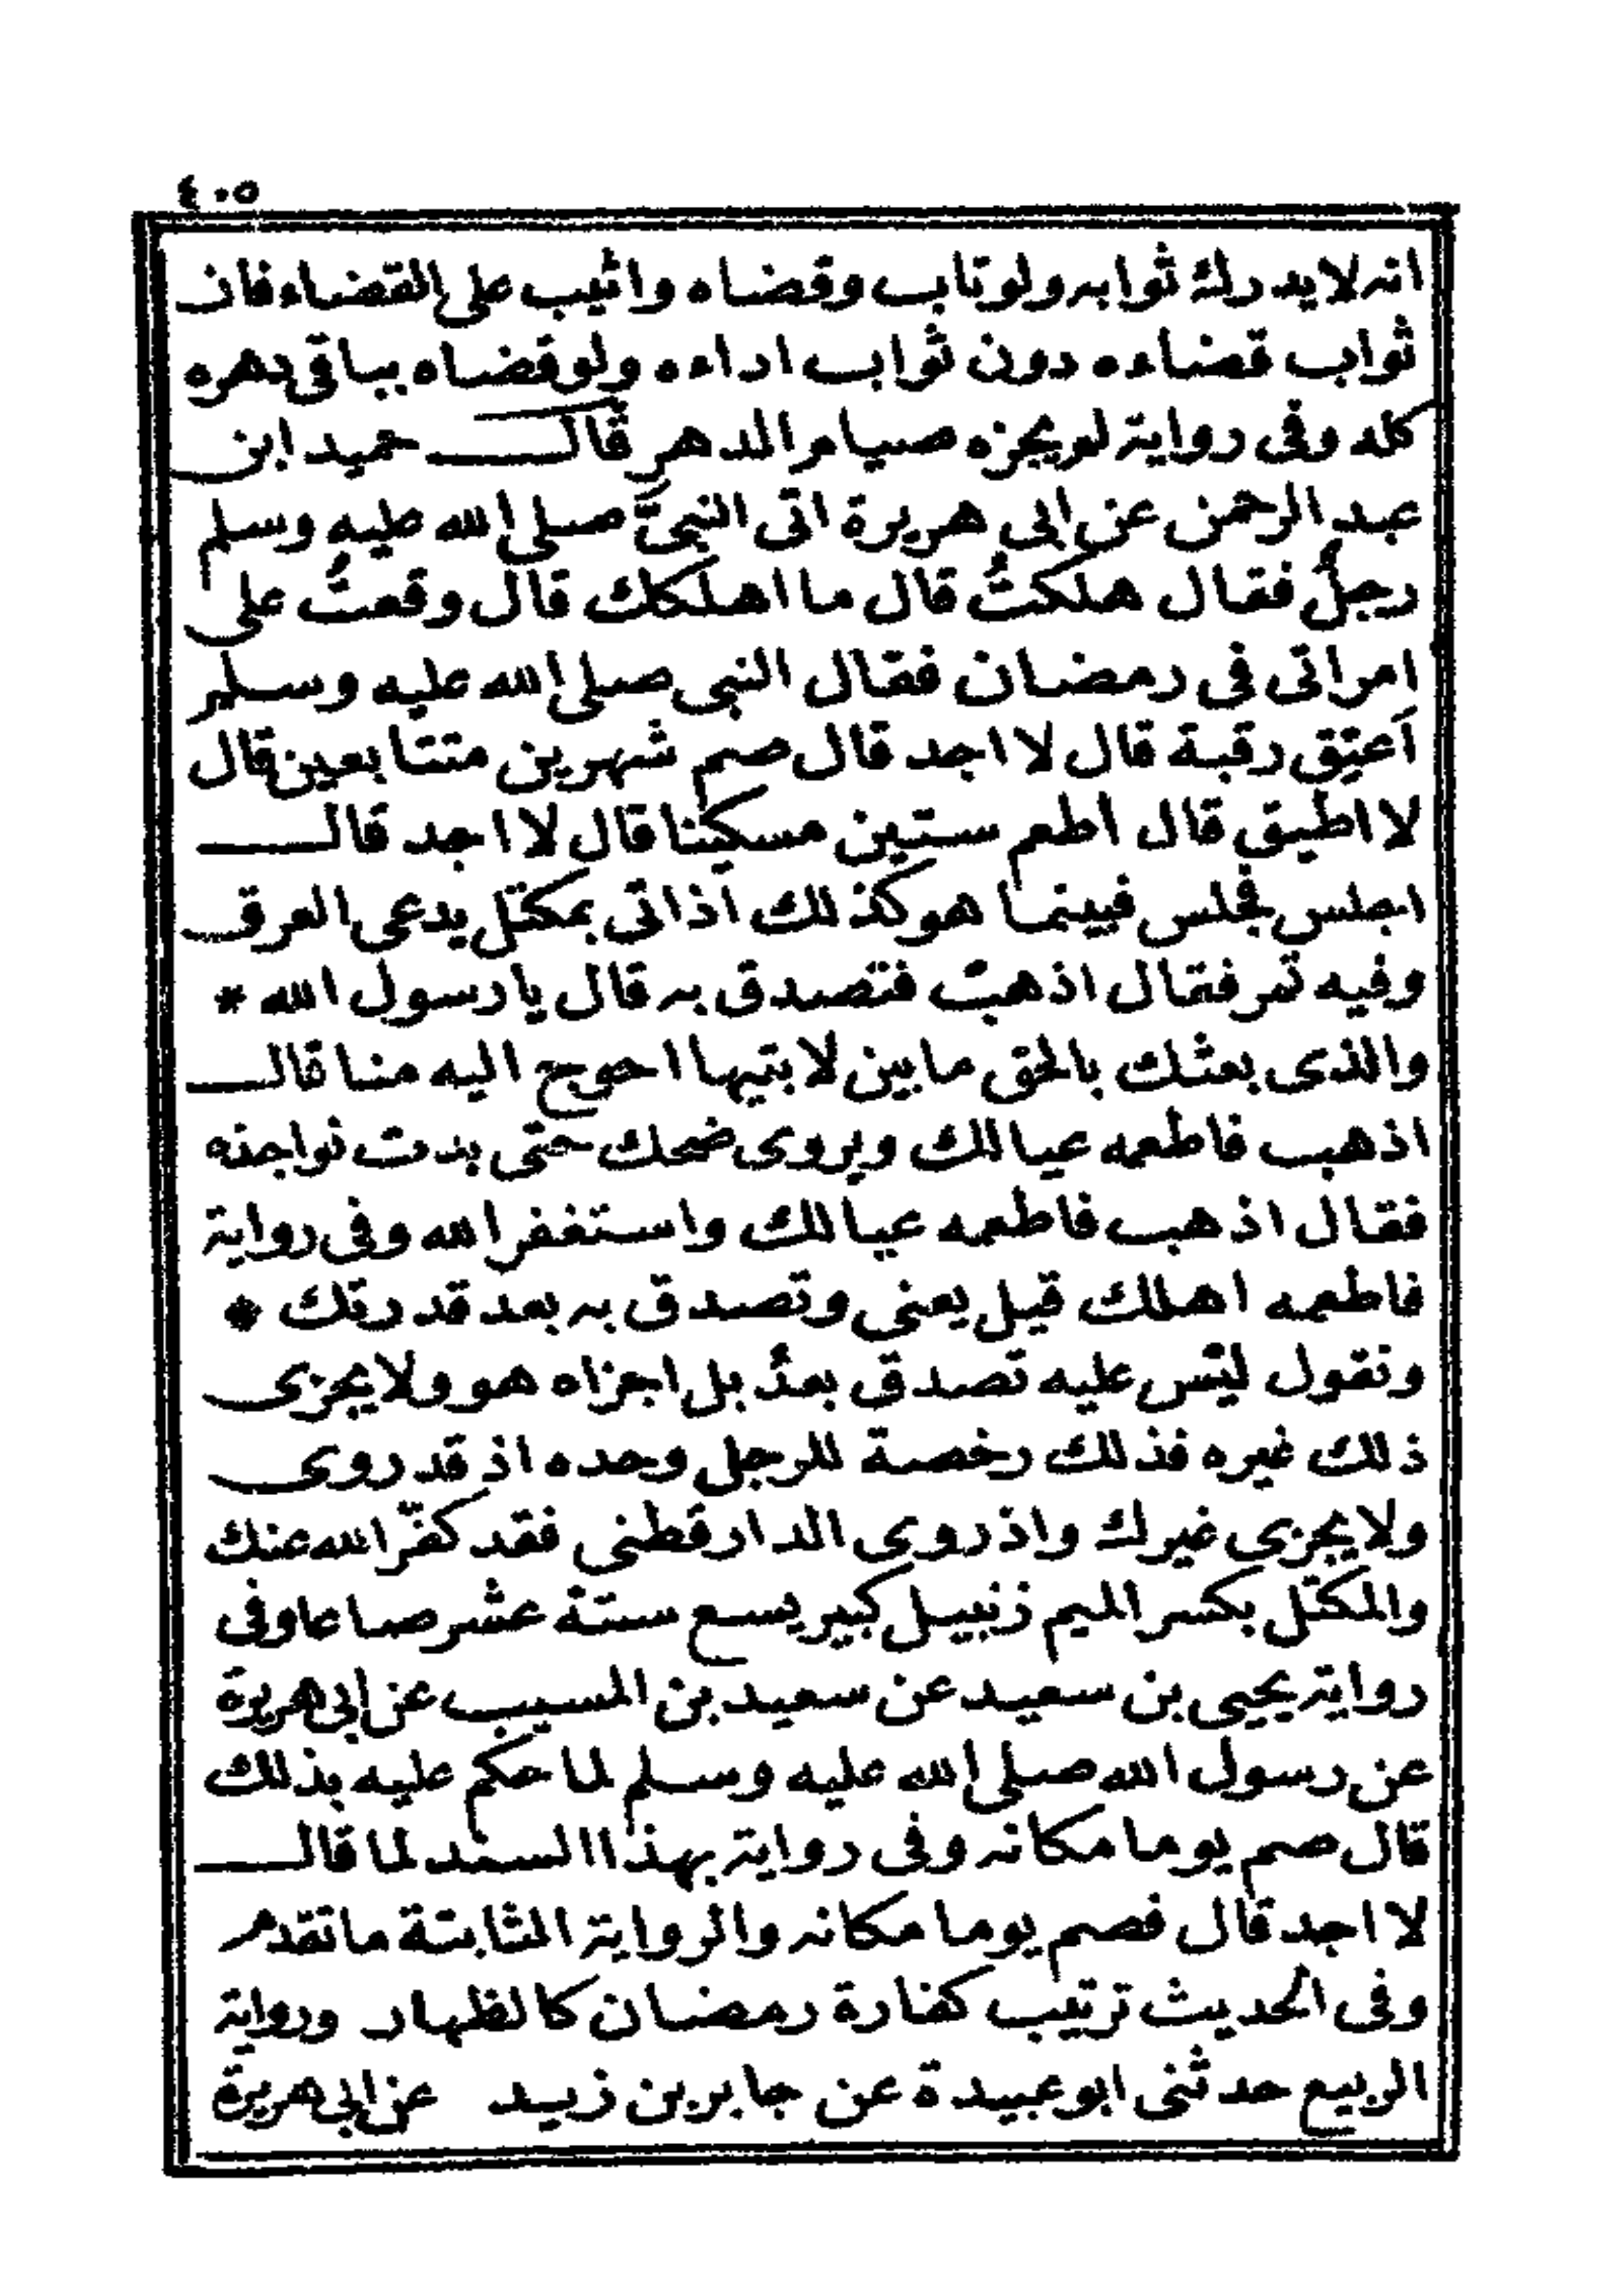 ٤٠٥
انه لا يدرك ثوابه ولو تاب وقضاه واثيب على القضاء فان
ثواب قضاءه دون ثواب اداءه ولو قضاه بباقى دهره
كله وفى رواية لم يجزه صيام الدهر قال حميد ابن
عبد الرحمن عن ابى هريرة اتى النبيَّ صلى الله عليه وسلم
رجلٌ فقال هلكتُ قال ما اهلكك قال وقعتُ على
امراتى فى رمضان فقال النبى صلى الله عليه وسلم
اَعتِق رقبة قال لا اجد قال صم شهرين متتابعين قال
لا اطيق قال اطعم ستين مسكينا قال لا اجد قال
اجلس فجلس فبينما هو كذلك اذ اتى بمكتل يدعى العرق
وفيه تمر فقال اذهبْ فتصدق به قال يا رسول الله *
والذى بعثك بالحق ما بين لابتيها احوج اليه منا قال
اذهب فاطعمه عيالك ويروى ضحك حتى بدت نواجذه
فقال اذهب فاطعمه عيالك واستغفر الله وفى رواية
فاطعمه اهلك قيل يعنى وتصدق به بعد قدرتك *
ونقول ليْس عليه تصدق بعدُ بل اجزاه هو ولا يجزى
ذلك غيره فذلك رخصة للرجل وحده اذ قد روى
ولا يجزى غيرك واذ روى الدارقطنى فقد كفّر الله عنك
والمكتل بكسر الميم زنبيل كبير يسع ستة عشر صاعا وفى
رواية يحيى بن سعيد عن سعيد بن المسيب عن ابى هريرة
عن رسول الله صلى الله عليه وسلم لما حكم عليه بذلك
قال صم يوما مكانه وفى رواية بهذا السند لما قال
لا اجد قال فصم يوما مكانه والرواية الثابتة ما تقدم
وفى الحديث ترتيب كفارة رمضان كالظهار ورواية
الربيع حدثنى ابو عبيدة عن جابر بن زيد عن ابى هريرة